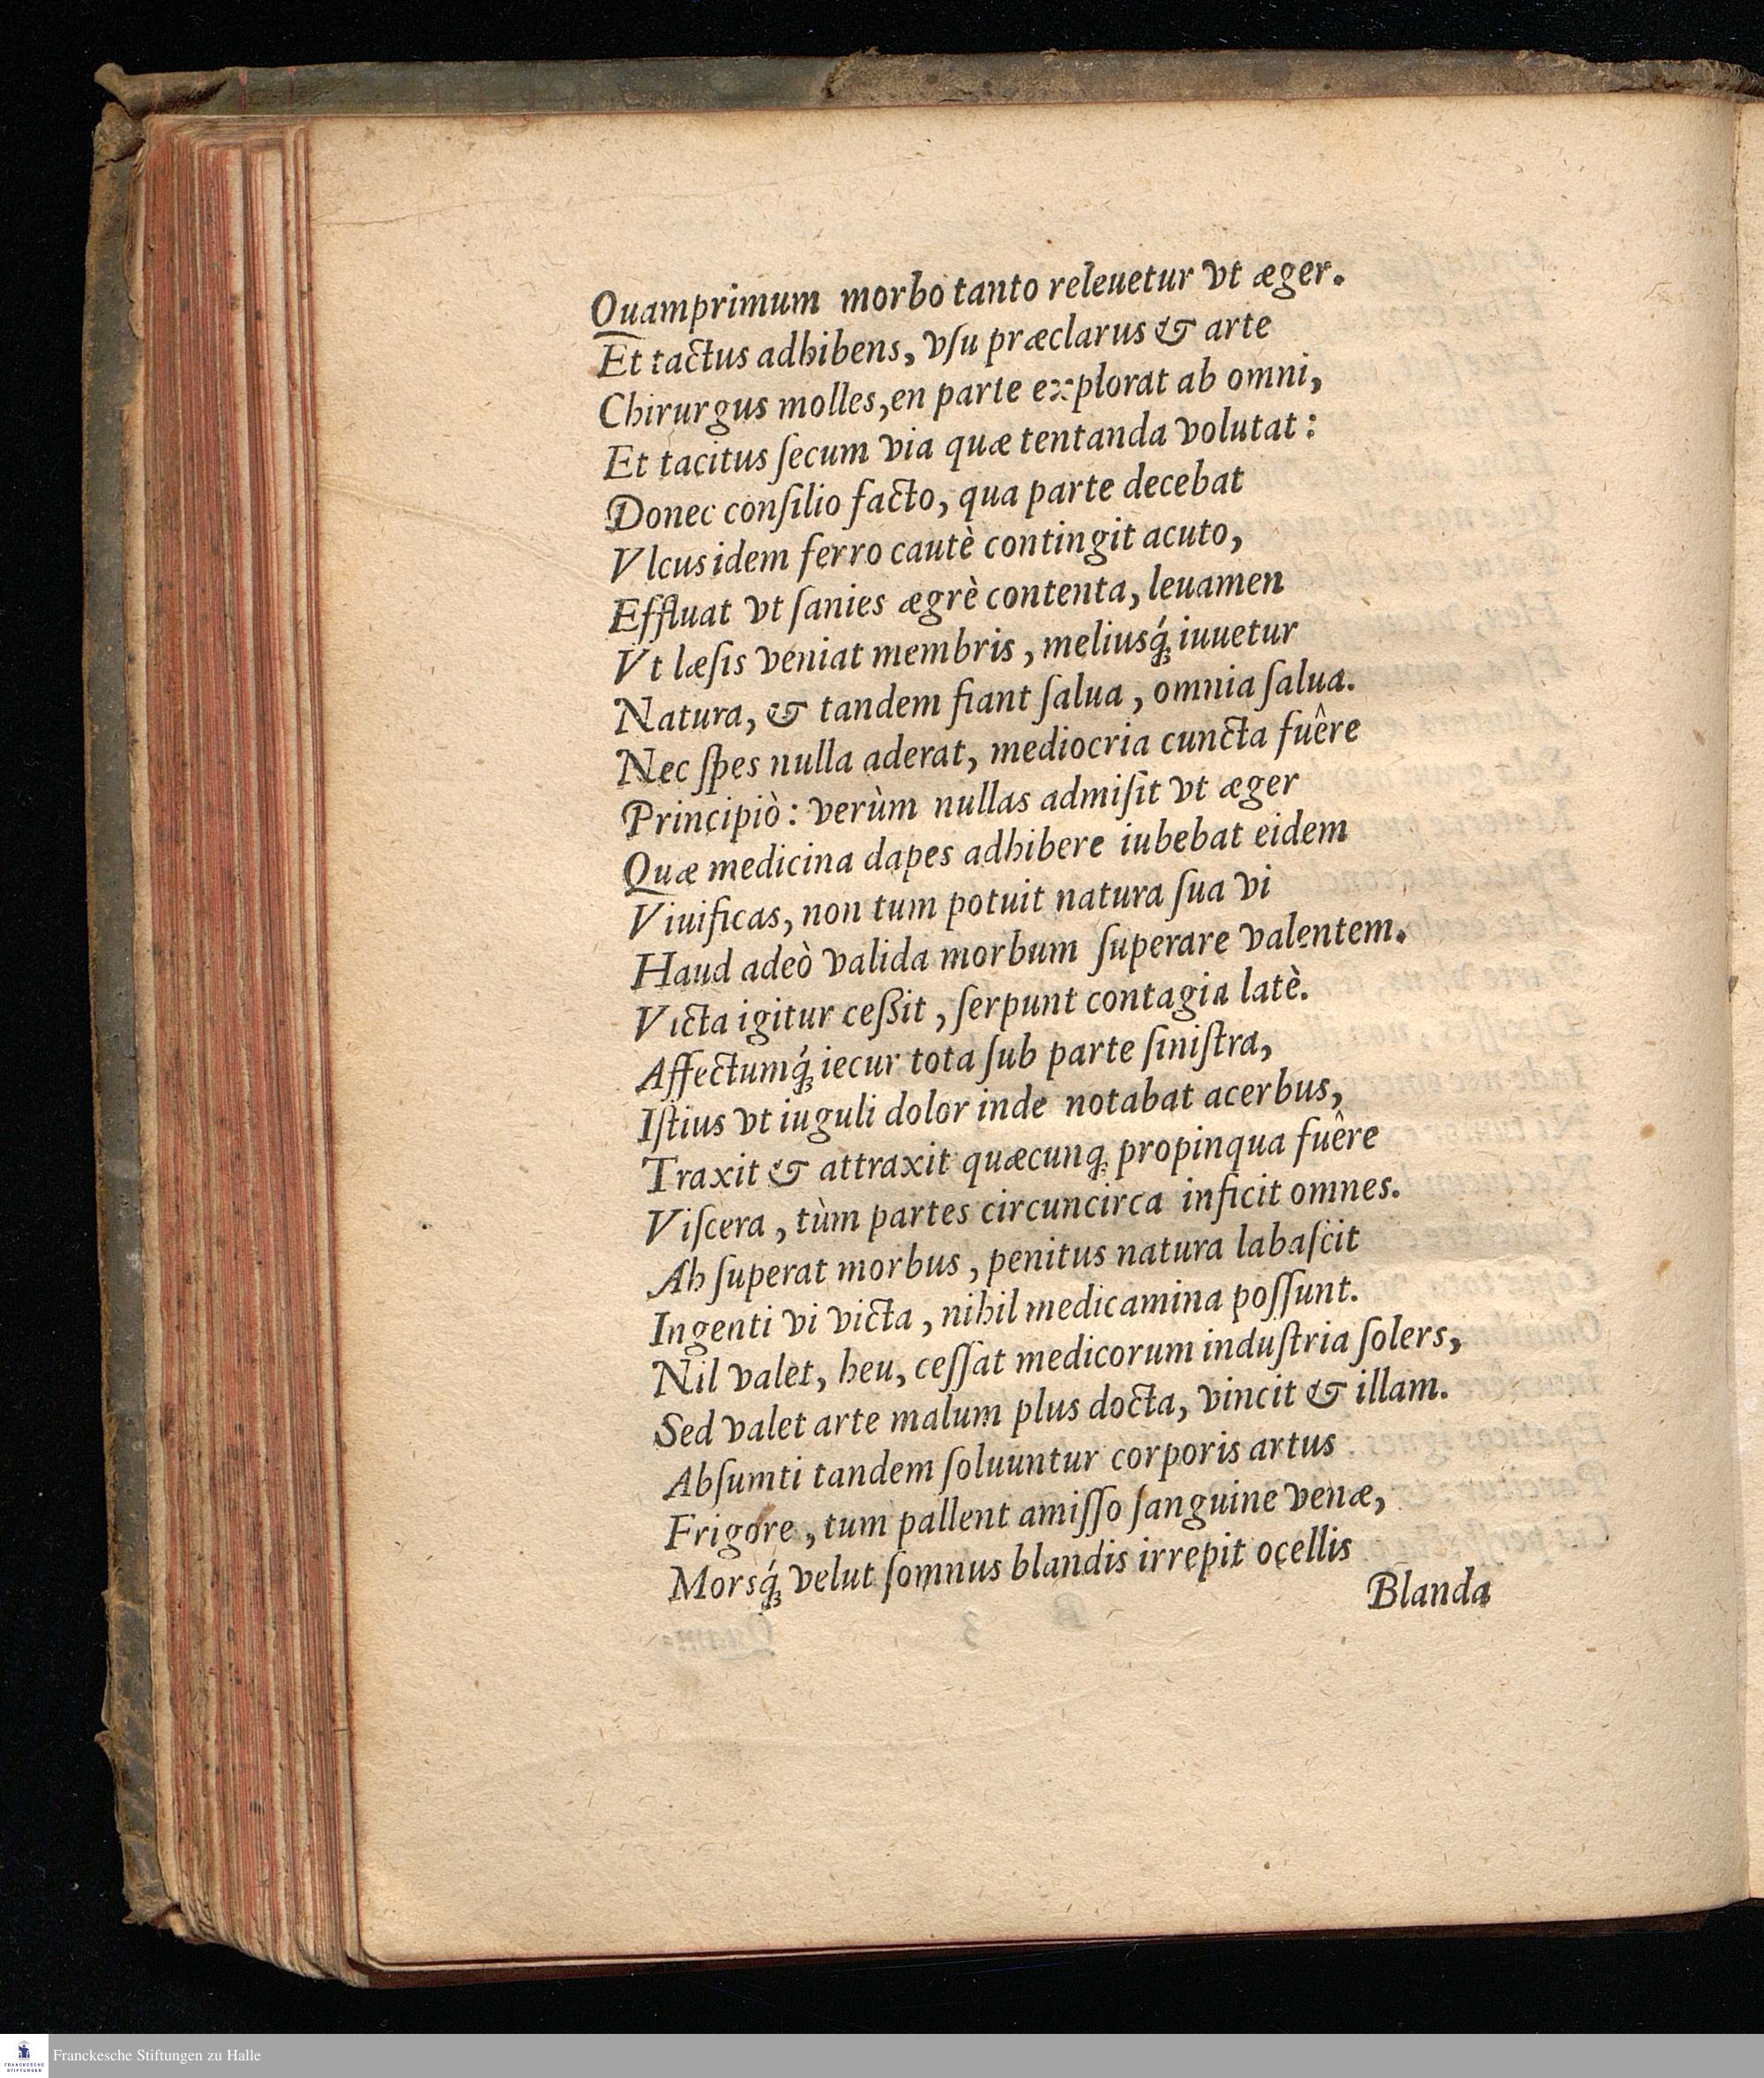 Quamprimum morbo tanto releuetur vt æger.
Et tactus adhibens, vſu præclarus & arte
Chirurgus molles, en parte explorat ab omni,
Et tacitus ſecum via quæ tentanda volutat:
Donec conſilio facto, qua parte decebat
Vlcus idem ferro cautè contingit acuto,
Effluat vt ſanies ægrè contenta, leuamen
Vt læſis veniat membris, meliusq́ꝫ iuuetur
Natura, & tandem fiant ſalua, omnia ſalua.
Nec ſpes nulla aderat, mediocria cuncta fuêre
Principiò: verùm nullas admiſit vt æger
Quæ medicina dapes adhibere iubebat eidem
Viuificas, non tum potuit natura ſua vi
Haud adeò valida morbum ſuperare valentem.
Victa igitur ceßit, ſerpunt contagia latè.
Affectumq́ꝫ iecur tota ſub parte ſiniſtra,
Iſtius vt iuguli dolor inde notabat acerbus,
Traxit & attraxit quæcunqꝫ propinqua fuêre
Viſcera, tùm partes circuncirca inficit omnes.
Ah ſuperat morbus, penitus natura labaſcit
Ingenti vi victa, nihil medicamina poſſunt.
Nil valet, heu, ceſſat medicorum induſtria ſolers,
Sed valet arte malum plus docta, vincit & illam.
Abſumti tandem ſoluuntur corporis artus
Frigore, tum pallent amiſſo ſanguine venæ,
Morsq́ꝫ velut ſomnus blandis irrepit ocellis
Blanda
FRANCKESCHE
STIFTUNGEN
Franckesche Stiftungen zu Halle